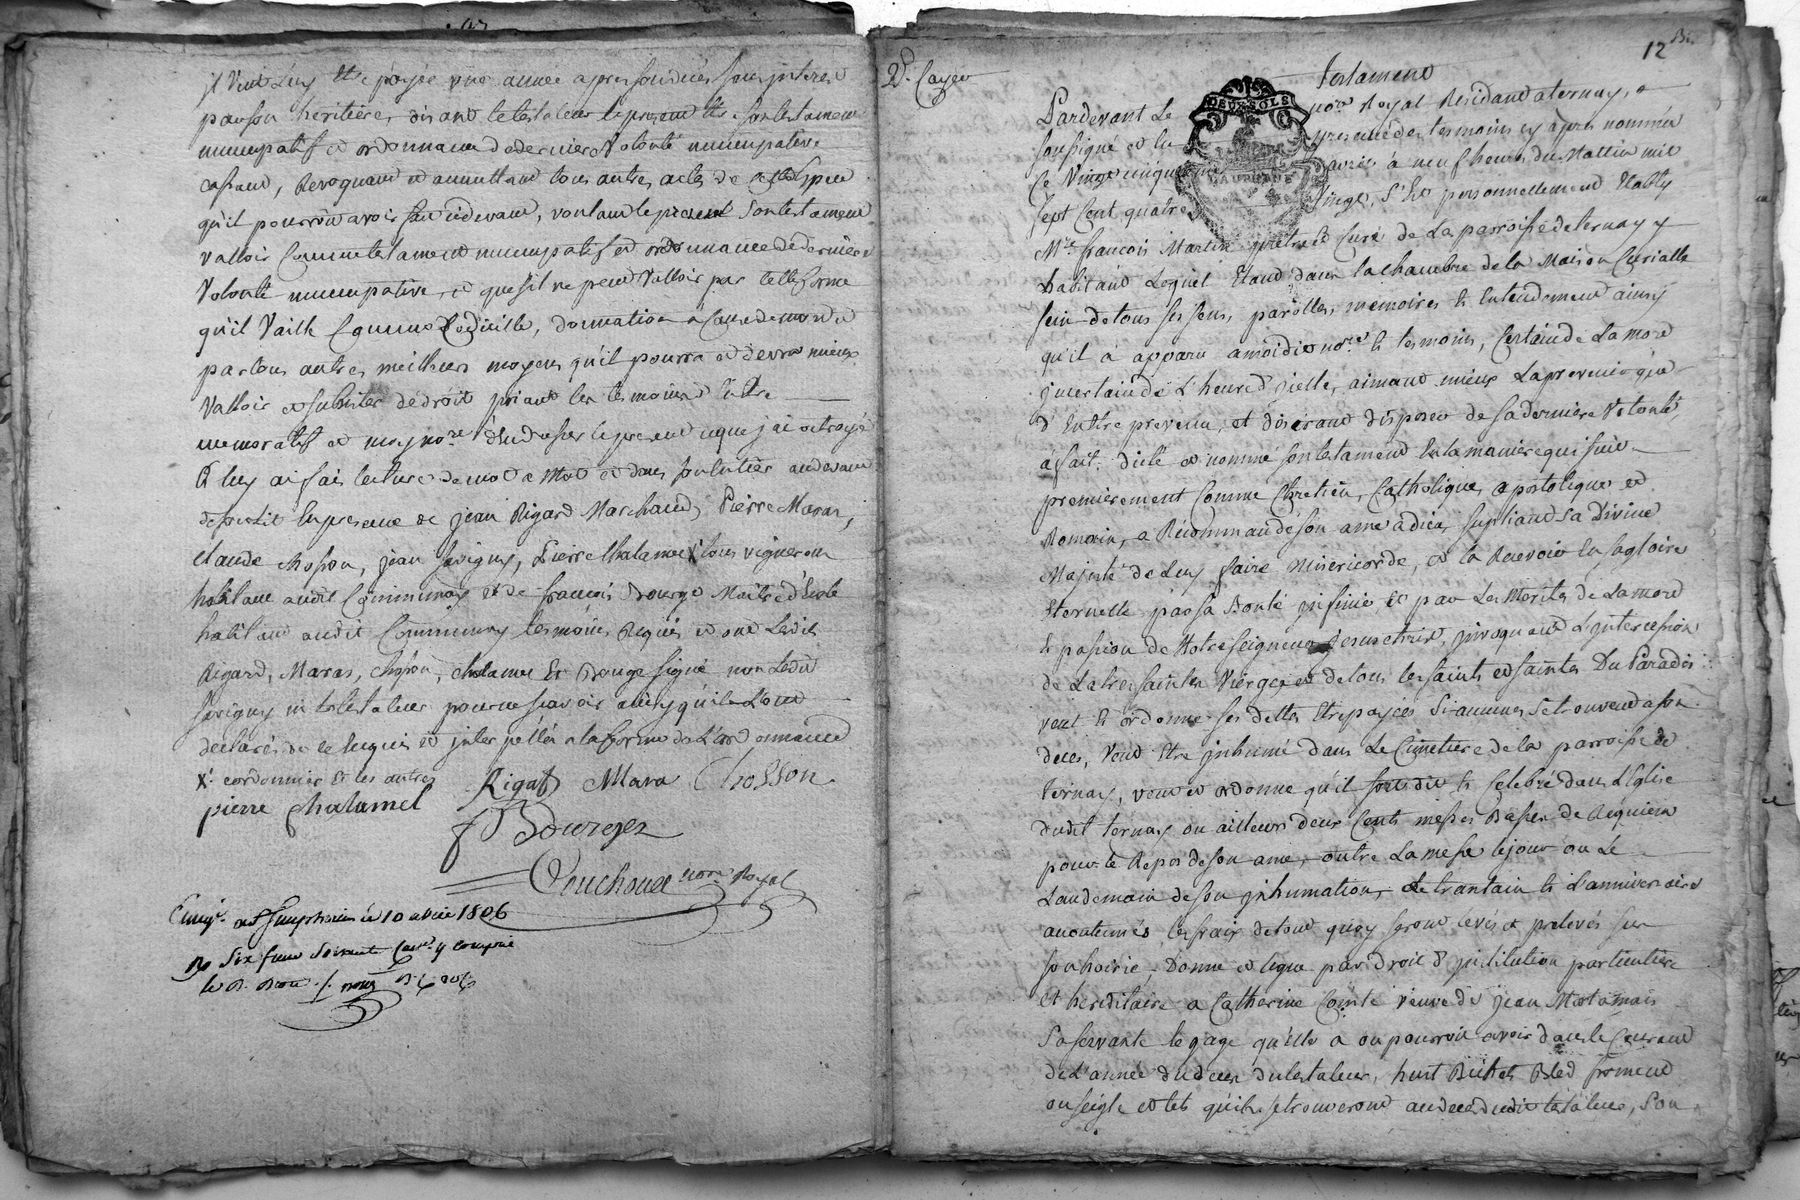 il veut leur être payée une année apres son decès sans interes
par son heritiere, disant le testateur le present être son testament
nuncupatif et ordonnance de derniere volonté nuncupative
cassant, revoquant et annullant tous autres actes de cette espece
qu'il pourroit avoir fait cidevant, voulant le present son testament
valloir comme testament nuncupatif et ordonnance de derniere
volonté nuncupative, et que s'il ne peut valloir par telle forme
qu'il vaille comme codicille, donnation a cause de mort et
par tous autres meilleurs moyens qu'il pourra et devra mieux
valloir et subsister de droit priant les temoins d'être
memoratifs et moy nore. d'endresser le present ce que j'ai octroyé
et luy ai fait lecture de mot a mot et dans son entier audevant
de son lit en presence de jean Rigard Marchand, Pierre Maras,
claude chosson, jean savigny, Pierre Chalamel X tous vignerons
habitant audit Communay et de francois Bourge Maitre d'Ecole
habitant audit Communay temoins requis et ont lesdits
Rigard, Maras, chosson, chalamel et Bourge signé non ledit
savigny ni le testateur pour ne scavoir ainsy qu'ils l'ont
declarés de ce enquis et interpellés a la forme de l'ordonnance
X cordonnier et les autres
pierre chalamel Rigat Mara Chosson
f Bourges
nore Royal
10 1806
Six soixante y compris
le
12 Bis
2d. Cayer
testament
Pardevant le nore Royal Residant a ternay,
soussigné et en presence des temoins cy apres nommés
ce vingt cinquieme avril à neuf heures du Mattin mil
sept Cent quatre vingt, s'est personnellement etably
Mre francois Martin prêtre et Curé de La parroisse de ternay y
habitant Lequel etant dans la chambre de la Maison Curialle
sain de tous ses sens, parolles, memoires et entendement ainsy
qu'il a apparu a moidit nore et temoins, Certain de La mort
incertain de L'heure d'icelle, aimant mieux La prevenir que
d'Entre prevenu, et desirant disposer de sa derniere volonté,
a fait, dicté et nommé son testament en la maniere qui suit
premierement Comme Chretien, Catholique, apostolique et
Romain, a Recommandé son ame a dieu, supliant sa Divine
Majesté de Luy faire Misericorde, et la Recevoir en sa gloire
Eternelle par sa Bonté infinie, et par Les Merites de La mort
et passion de Notre seigneur Jesus christ, invoquant L'intercession
de La tres sainte Vierge et de tous les saints et saintes Du Paradis
veut et ordonne ses dettes etre payées si aucunes se trouvent a son
deces, veut etre inhumé dans Le Cimetiere de la parroisse de
ternay, veut et ordonne qu'il soit dit et Celebré dans L'Eglise
dudit ternay ou ailleurs deux Cents messes Basses de Requiem
pour le Repos de son ame, outre La messe le jour ou Le
Landemain de son inhumation, Le trantain et L'anniversaire
accoutumés les frais de tout quoy seront levés et prelevés sur
son hoirie. Donne et legue par droit d'institution particuliere
et hereditaire a Catherine Comte veuve de jean
sa servante le gage qu'elle a ou pourroit avoir dans le Courant
de L'année du deces du testateur, huit Bichets Bled froment
ou seigle et tels qu'ils se trouveront au deces dudit testateur, son